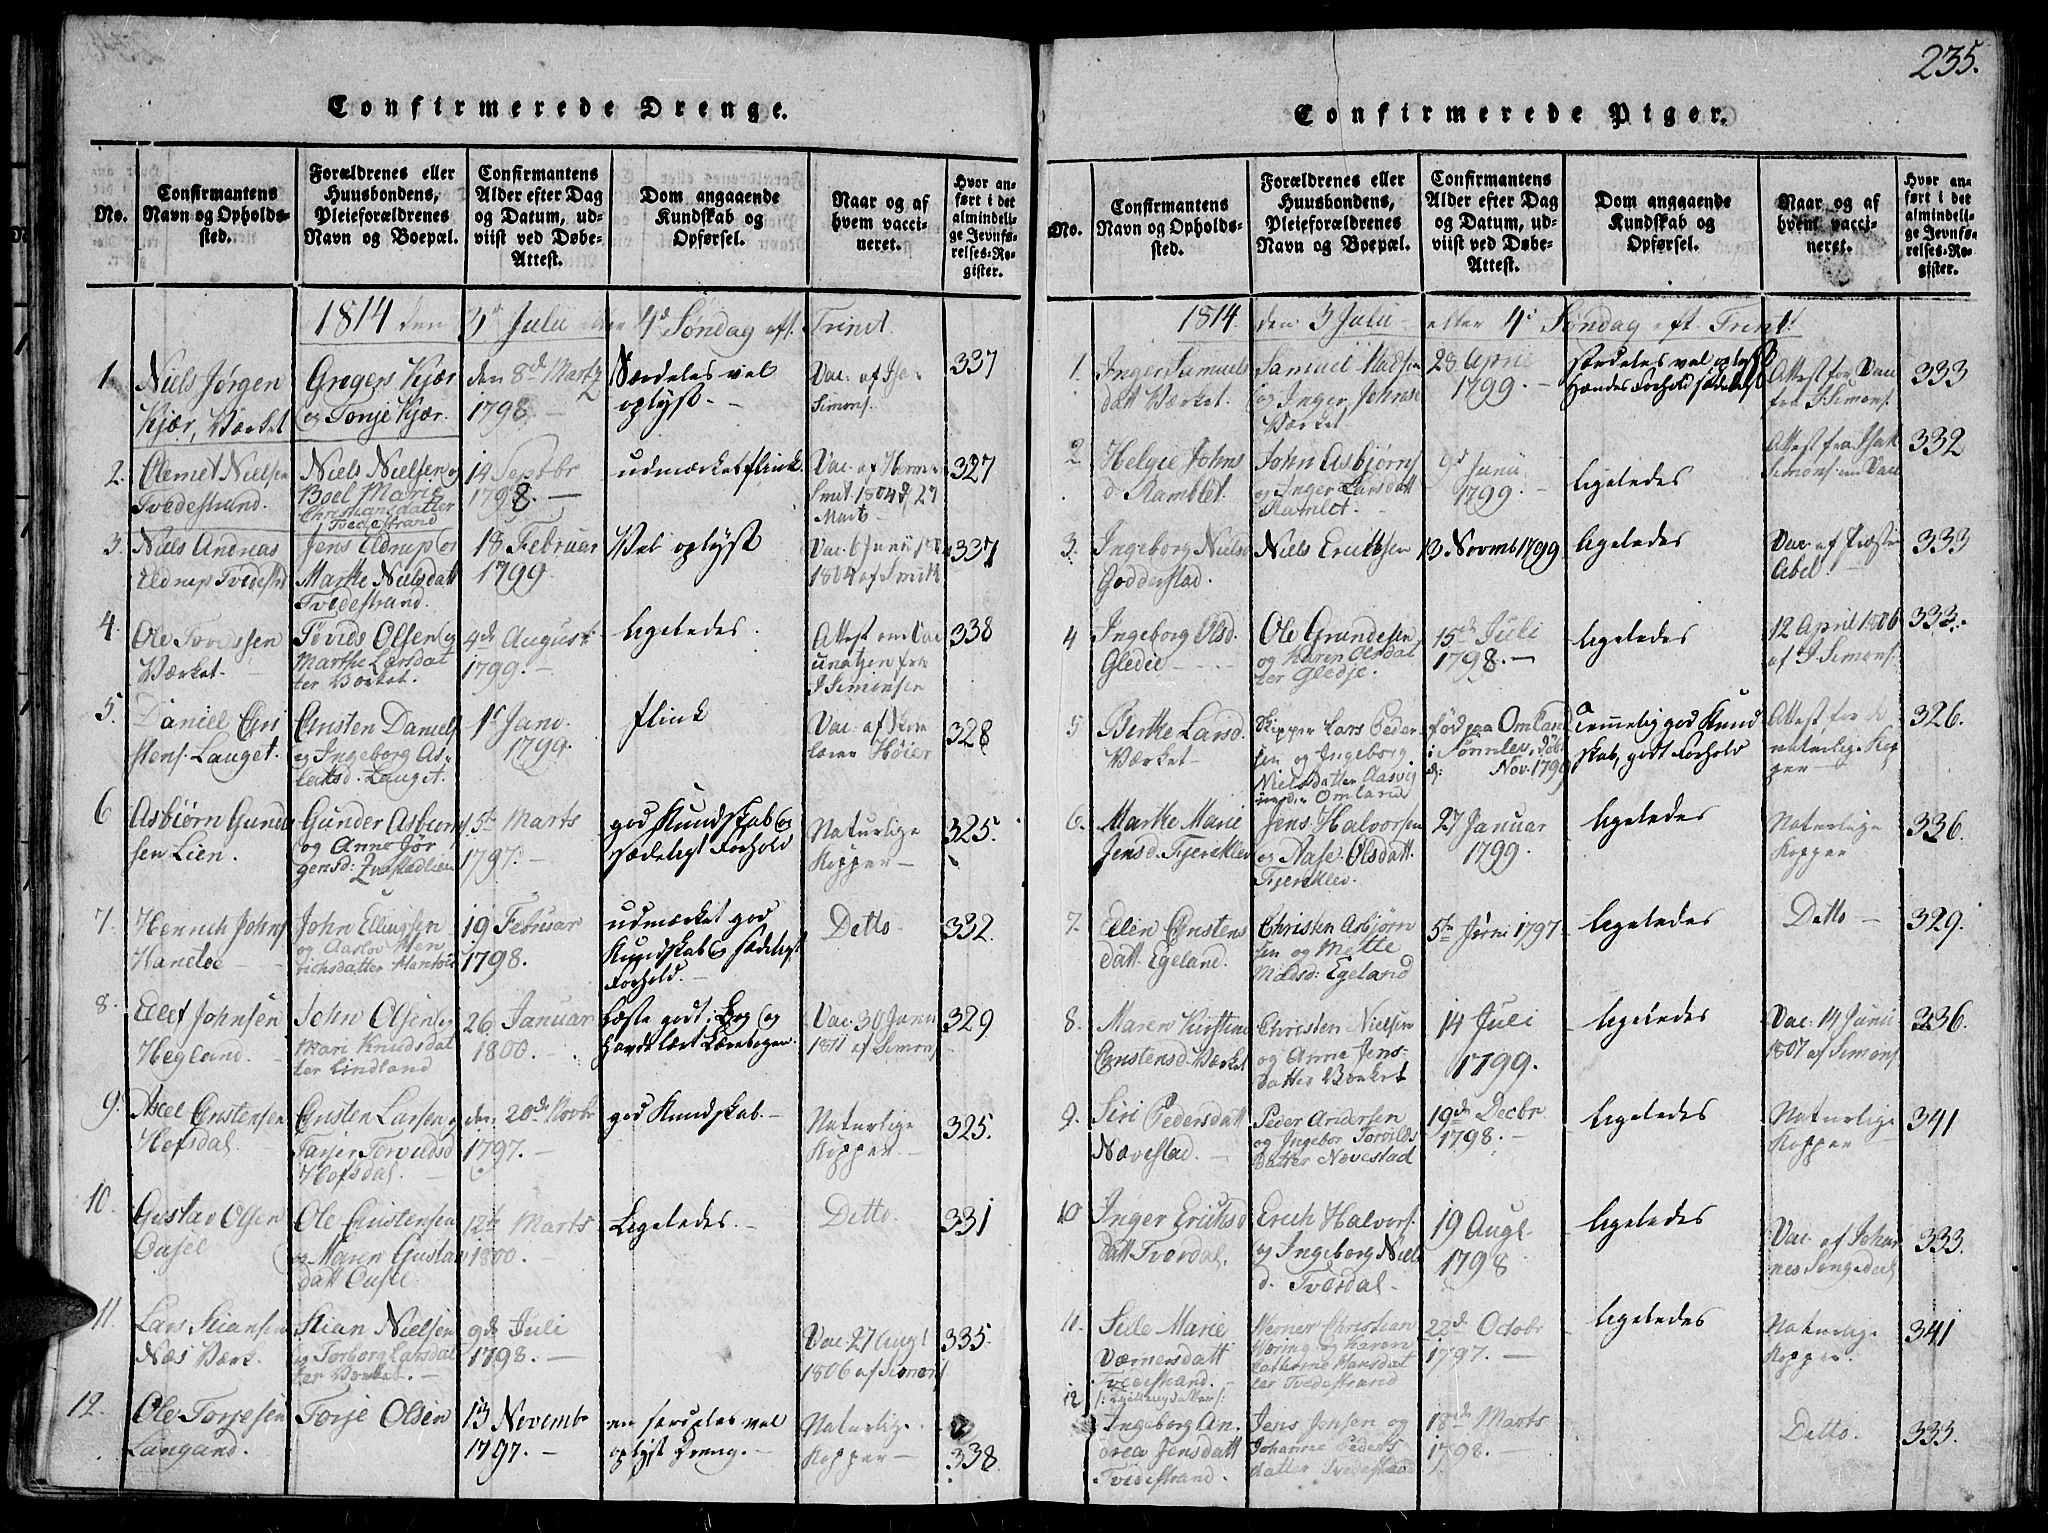 235.
Confirmerede Drenge.
No.
Confirmantens
Navn og Opholds-
sted.
Forældrenes eller
Huusbondens,
Pleieforældrenes
Navn og Boepæl.
Confirmantens
Alder efter Dag
og Datum, ud-
viist ved Døbe-
Attest.
Dom angaaende
Kundskab og
Opførsel.
Naar og af
hvem vacci-
neret.
Hvor an-
ført i det
almindeli-
ge Jevnfø-
relses-Re-
gister.
1814 den 3d Julii eller 4d Søndag eft. Trinit.
1.
Niels Jørgen
Kjær, Værket
Gregers Kjær
og Tonje Kjær.
den 8de Marty
1798. —
Særdeles vel
oplyst. —
Vac. af Ja.
Simons.
337
2.
Clemet Nielsen
Tvedestrand.
Niels Nielsen og
Boel Marie
Christiansdatter
Tvedestrand
14 Septbr
1798. —
udmærket flink.
Vac. af
Smit. 1804 d. 27
Marts
327
3.
Niels Andreas
Eldrup Tvedestrd
Jens Eldrup og
Marthe Nielsdatt
Tvedestrand.
18 Februar
1799.
Vel oplyst
Vac. 6 Junii
1804 af Smith
337
4.
Ole Tovidssen
Værket. —
Tovids Olsen og
Marthe Larsdat
ter Værket.
4de August
1799. —
Ligeledes.
Attest om Vac
fra
J Simonsen
338
5.
Daniel Chri
stens. Lauget.
Christen Daniels
og Ingeborg As-
laksd. Lauget.
1e Janv.
1799.
flink
Vac. af
Høier
328
6
Asbiørn Gunder
sen Lien.
Gunder Asbiørns
og Anne Jør
gensd:
5te Marts
1797. —
god Kundskab og
sædeligt Forhold
Naturlige
Kopper —
325.
7.
Henrich Johns
Hanetoe
John Ellingsen
og Aaslov Hen
richsdatter Hanetoe
19 Februar
1798.
udmærket god
Kundskab og sædeligt
Forhold. —
Detto.
332.
8.
Ellef Johnsen
Hegland.
John Olsen og
Mari Knudsdat
ter Lindland
26 Januar
1800. —
læste godt i Bog og
havde lært Lærebogen.
Vac. 30 Junii
1811 af Simons
329
9.
Axel Christensen
Hofsdal.
Christen Larsen og
Tarjer Torvildsd
Hofsdal.
den 20de Novbr
1797. —
god Kundskab. —
Naturlige
Kopper. —
325.
10.
Gustav Olsen
Ousel
Ole Christensen
og Maren Gustav
datt Ousle.
12te Marts
1800. —
Ligeledes. —
Detto.
331
11.
Lars Stiansen
Næs Værk.
Stian Nielsen
og Torborg Larsdat
ter Værket. —
9de Juli
1798. —
Vac 27 Augt
1806 af Simons
335.
12.
Ole Torjesen
Langand.
Torje Olsen
13 Novembr
1797. —
en særdeles vel
oplyst Dreng. —
Naturlige
Kopper —
338.
Confirmerede Piger.
No.
Confirmantens
Navn og Opholds-
sted.
Forældrenes eller
Huusbondens,
Pleieforældrenes
Navn og Boepæl.
Confirmantens
Alder efter Dag
og Datum, ud-
viist ved Døbe-
Attest.
Dom angaaende
Kundskab og
Opførsel.
Naar og af
hvem vacci-
neret.
Hvor an-
ført i det
almindeli-
ge Jevnfø-
relses-Re-
gister.
1814. den 3 Julii eller 4e Søndag eft. Trinit.
1.
Inger Samuels
datt Værket.
Samuel Madsen
og Inger Johnsd
Værket.
28 April
1799. —
særdeles vel oplyst
Hendes Forhold sædeligt
Attest for Vac
fra J Simons.
333
2.
Helgie Johns
d. Ramblet.
John Asbjørns
og Inger Larsdatt
Ramlet. —
9d Junii
1799. —
ligeledes
Attest fra Isak
Simons. om Vac
332
3.
Ingeborg Nielsd
Godderstad.
Niels Erichsen
13 Novmb 1799
ligeledes
Vac. af Præsten
Abel. —
333
4
Ingeborg Olsd.
Gledie —
Ole Grundesen
og Karen Olsdat
ter Gledje.
15de Juli
1798. —
ligeledes
12 April 1806
af J Simons.
333.
5
Berthe Larsd.
Værket —
Skipper Lars Peder
sen og Ingeborg
Nielsdatter Aasvig
Omland
fød paa Omland
i Sønnlev, døbt
d: Nov. 1796
Temmelig god Kund
skab, godt Forhold
Attest for
naturlige Kop
per —
326.
6.
Marthe Marie
Jensd. Fjereklev
Jens Halvorsen
og Aase Olsdatt.
Fjereklev.
27 Januar
1799.
ligeledes
Naturlige
Kopper —
336.
7.
Elen Christens
datt. Egeland.
Christen Asbjørn
sen og Mette
Madsd: Egeland
5te Jørni 1797
ligeledes
Detto —
329.
8.
Maren Kirstine
Christensd. Værket
Christen Nielsen
og Anne Jens-
datter Værket
14 Juli
1799.
ligeledes
Vac. 14 Junii
1807 af Simons
336.
9.
Siri Pedersdatt
Nævestad. —
Peder Andersen
og Ingebor Torvilds
datter Nævestad
19de Decbr
1798. —
ligeledes
Naturlige
Kopper —
341
10
Inger Erichs
datt Tverdal.
Erich Halvors.
og Ingeborg Niels
d. Tverdal. —
19 Augt.
1798
ligeledes
Vac. af Johan
nes Songedal
333.
11.
Sille Marie
Værnersdatt
Tvedestrand. —
Werner Christian
Wæring og Karen
Catherine Hansdat
ter Tvedestrand
22de Octobr
1797. —
ligeledes
Naturlige
Kopper.
341
12
Ingeborg An.
drea Jensdatt
Tvedestrand.
Jens Jensen og
Johanne Peders
datter Tvedestrand
18de Marts
1798. —
Detto.
333.